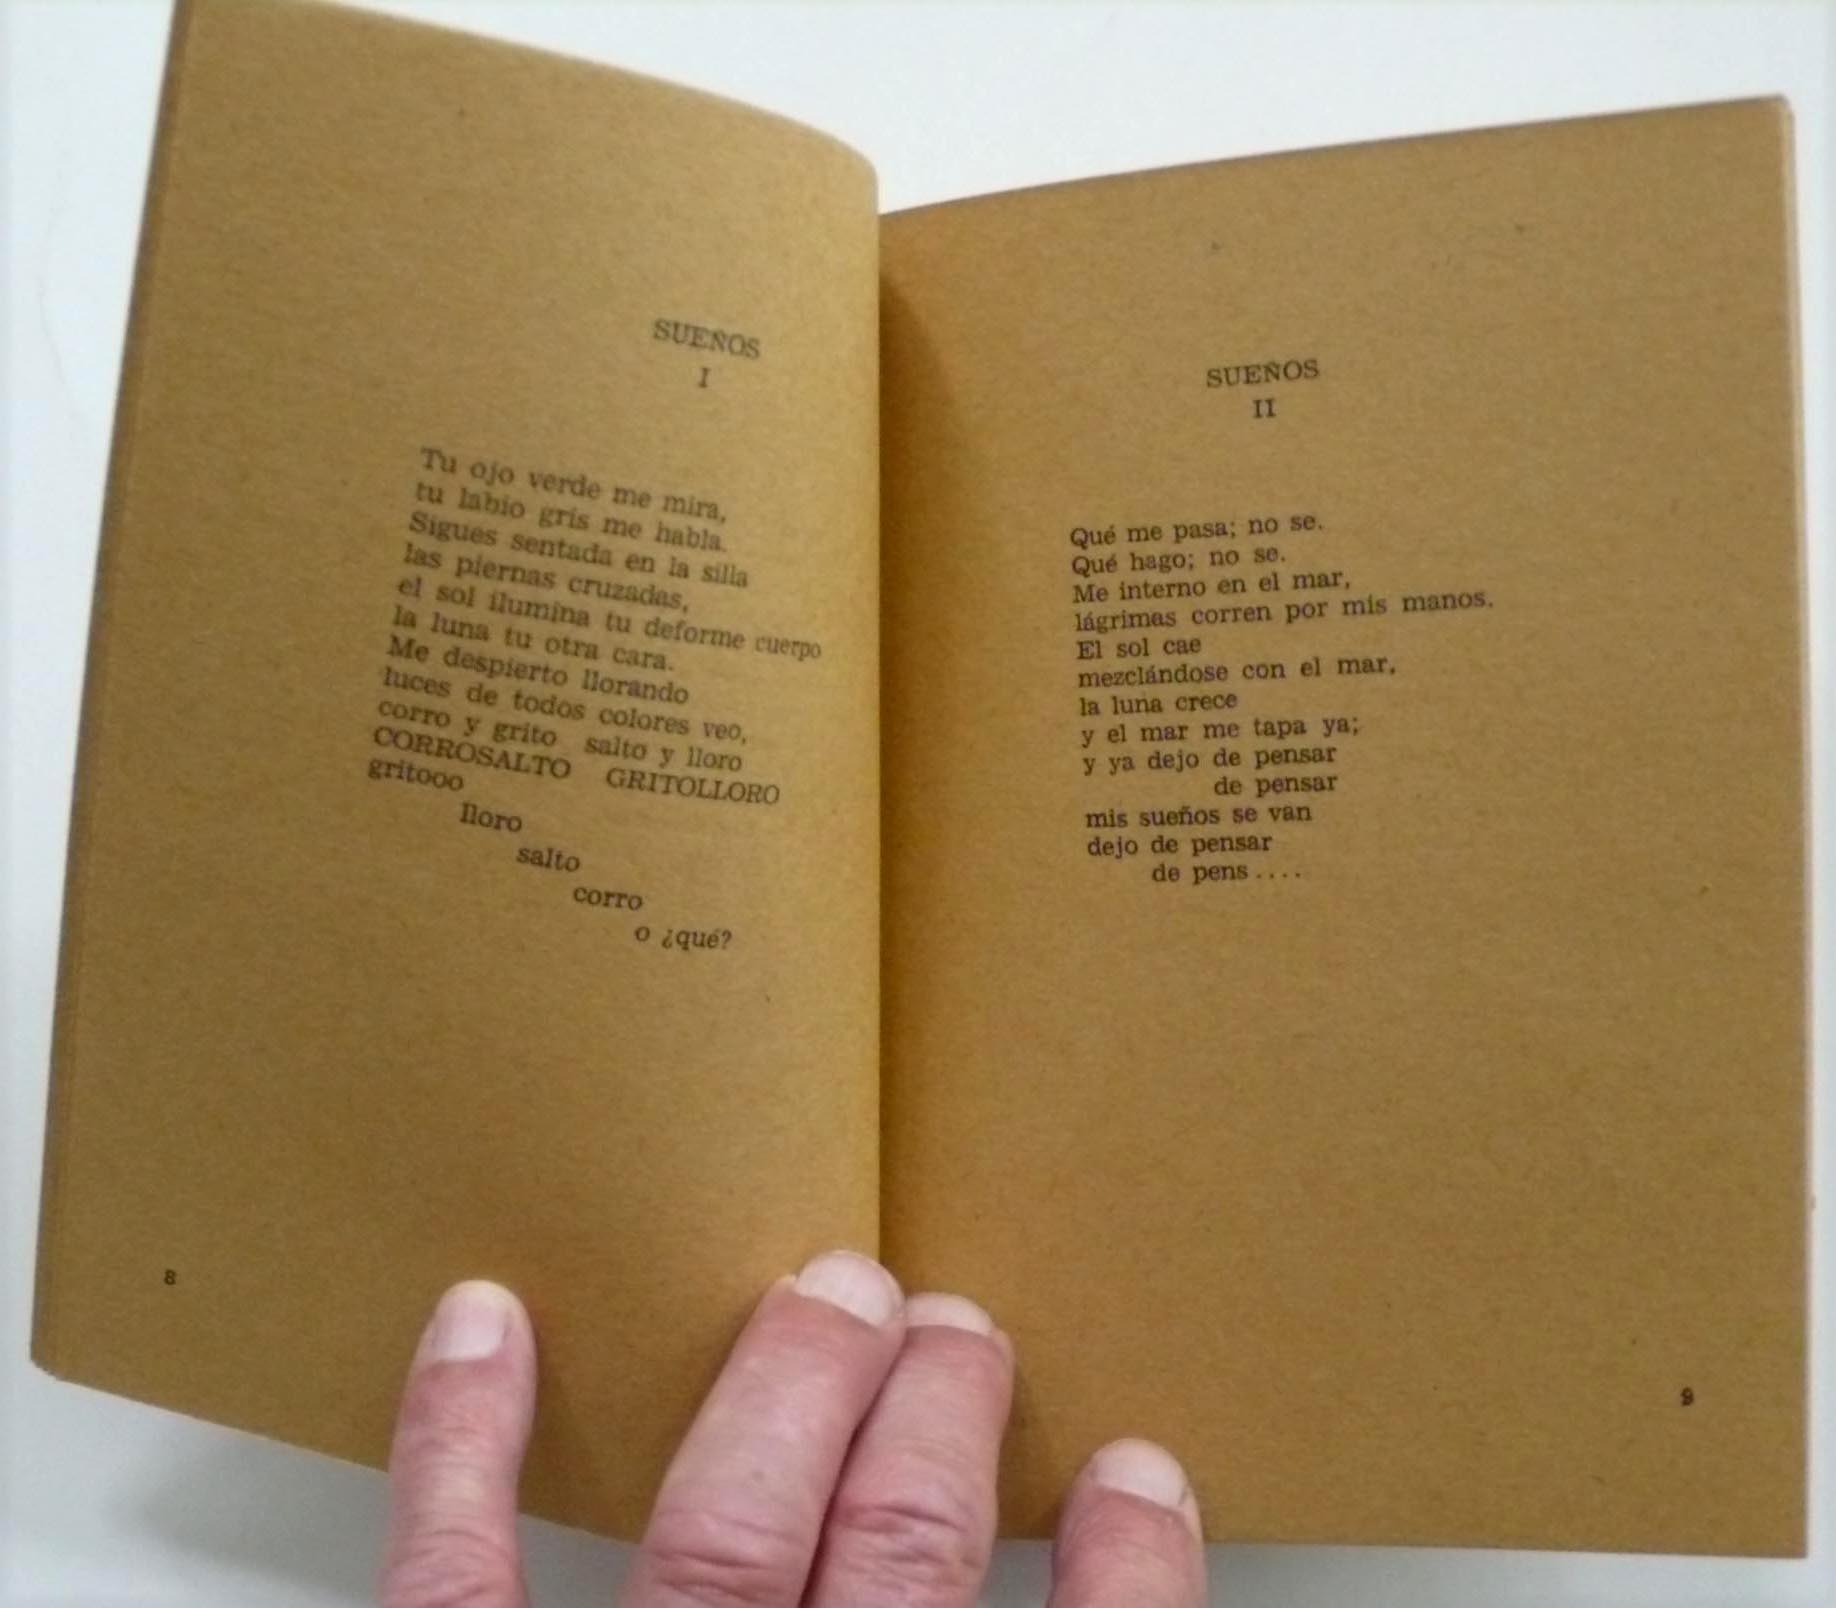 SUEÑOS
I
Tu ojo verde me mira,
tu labio gris me habla.
Sigues sentada en la silla
las piernas cruzadas,
el sol ilumina tu deforme cuerpo
la luna tu otra cara.
Me despierto llorando
luces de todos colores veo,
corro y grito salto y lloro
CORROSALTO GRITOLLORO
gritooo
lloro
salto
corro
o ¿qué?
8
SUEÑOS
II
Qué me pasa; no se.
Qué hago; no se.
Me interno en el mar,
lágrimas corren por mis manos.
El sol cae
mezclándose con el mar,
la luna crece
y el mar me tapa ya;
y ya dejo de pensar
de pensar
mis sueños se van
dejo de pensar
de pens....
9